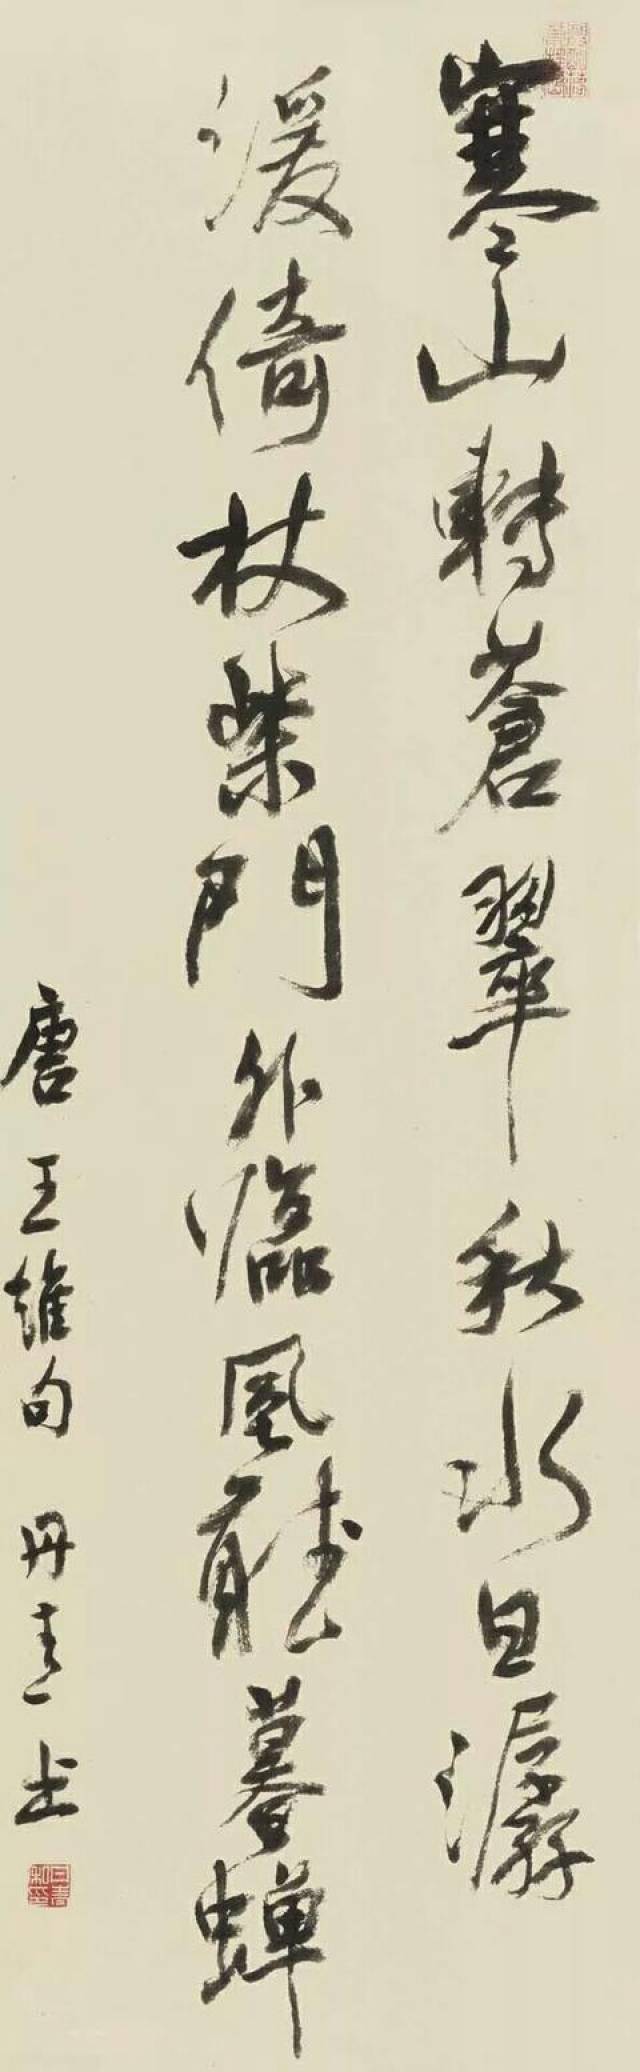 寒山轉蒼翠秋水日潺
湲倚杖柴門外臨風聽暮蟬
唐王維句 丹青书